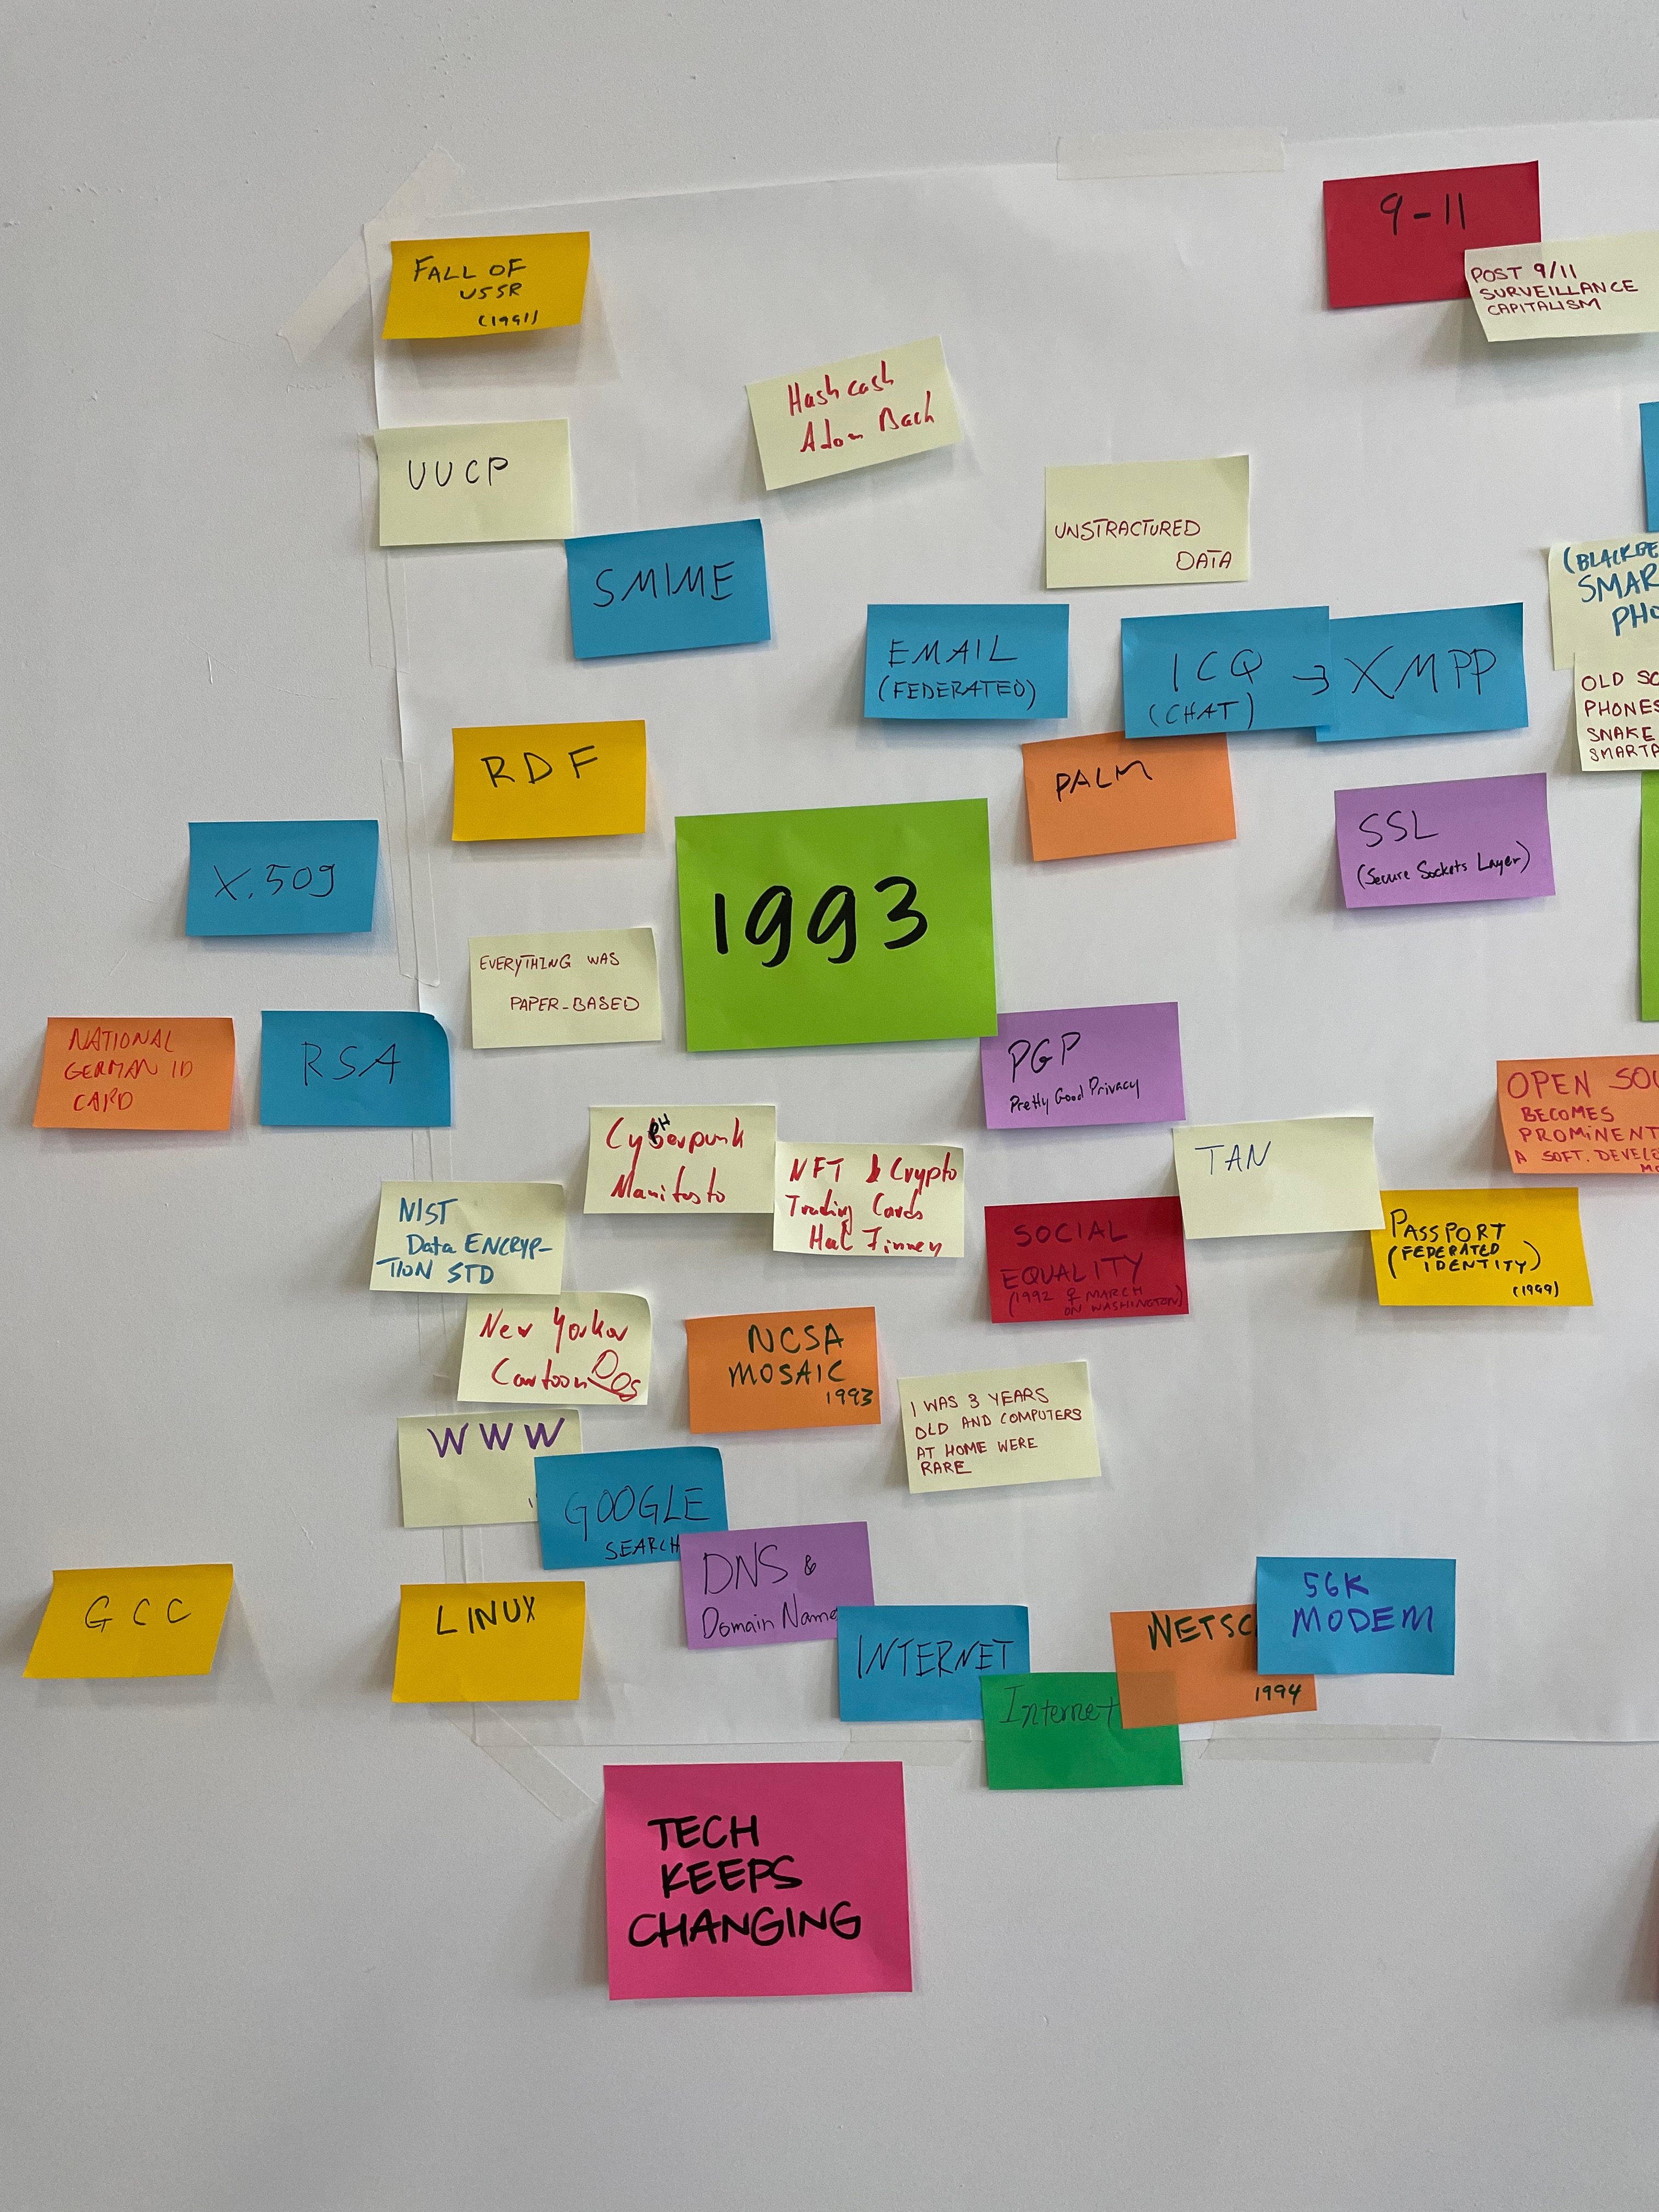 9-11
FALL OF
USSR
(1991)
POST 9/11
SURVEILLANCE
CAPITALISM
Hashcash
Adam Back
UUCP
UNSTRACTURED
DATA
SMIME
(BLACKBE
SMAR
PHO
EMAIL
(FEDERATED)
ICQ → XMPP
(CHAT)
OLD SC
PHONES
SNAKE
SMARTP
RDF
PALM
SSL
(Secure Sockets Layer)
X.509
1993
EVERYTHING WAS
PAPER-BASED
NATIONAL
GERMAN ID
CARD
RSA
PGP
Pretty Good Privacy
OPEN SOU
BECOMES
PROMINENT
A SOFT. DEVELE
MO
CypHerpunk
Manifesto
NFT & Crypto
Trading Cards
Hal Finney
TAN
NIST
Data ENCRYP-
TION STD
SOCIAL
EQUALITY
(1992 ♀ MARCH
ON WASHINGTON)
PASSPORT
(FEDERATED
IDENTITY)
(1999)
New Yorker
Cartoon Dog
NCSA
MOSAIC
1993
I WAS 3 YEARS
OLD AND COMPUTERS
AT HOME WERE
RARE
WWW
GOOGLE
SEARCH
DNS &
Domain Name
GCC
LINUX
INTERNET
Internet
NETSC
1994
56K
MODEM
TECH
KEEPS
CHANGING